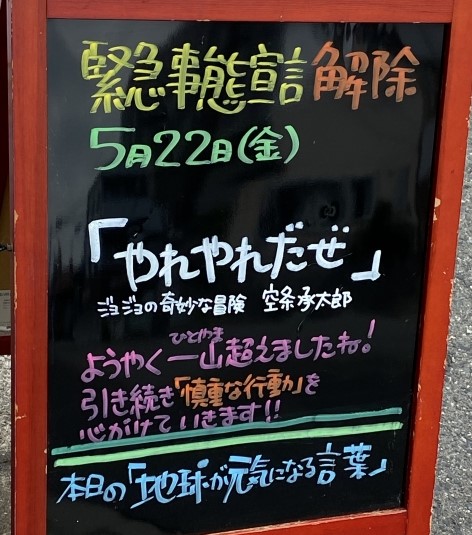 緊急事態宣言解除
5月22日(金)
「やれやれだぜ」
ジョジョの奇妙な冒険 空条承太郎
ひとやま
ようやく一山超えましたね!
引き続き「慎重な行動」を
心がけていきます!!
本日の「地球が元気になる言葉」